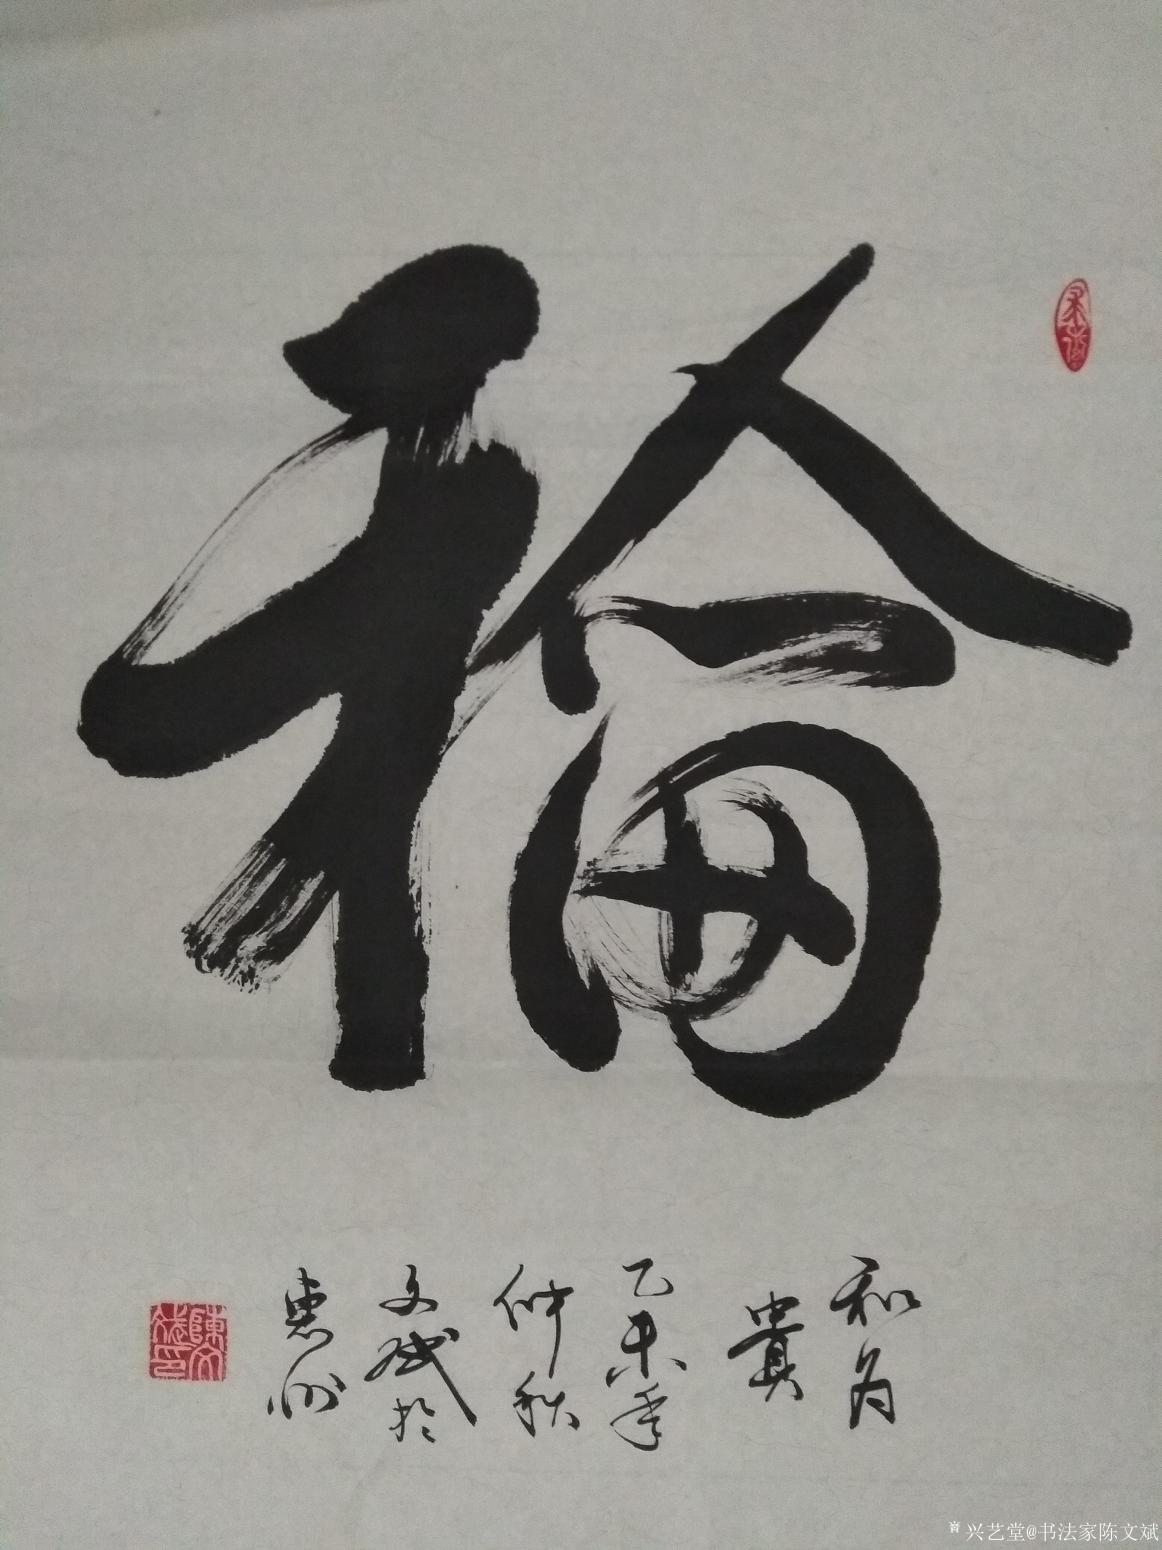 福
和为
貴
乙未年
仲秋
文斌於
惠州
陳文斌印
兴艺堂@书法家陈文斌